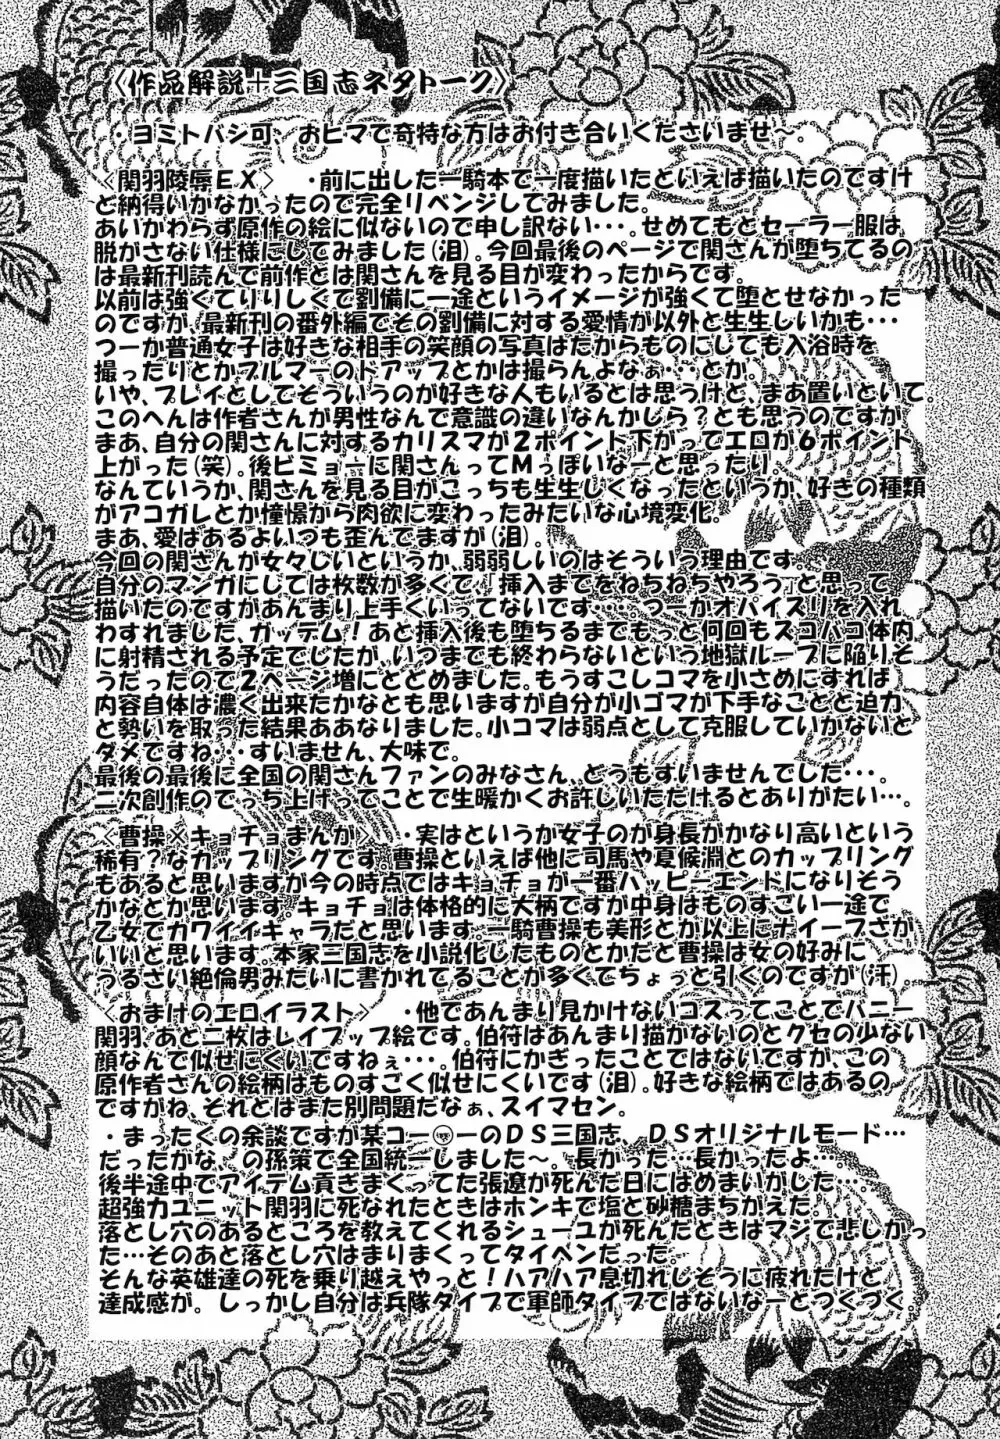 〈作品解説＋三国志ネタトーク〉
・ヨミトバシ可、おヒマで奇特な方はお付き合いくださいませ～。
〈関羽陵辱ＥＸ〉　・前に出した一騎本で一度描いたといえば描いたのですけ
ど納得いかなかったので完全リベンジしてみました。
あいかわらず原作の絵に似ないので申し訳ない・・・。せめてもとセーラー服は
脱がさない仕様にしてみました(泪)。今回最後のページで関さんが堕ちてるの
は最新刊読んで前作とは関さんを見る目が変わったからです。
以前は強くてりりしくて劉備に一途というイメージが強くて堕とせなかった
のですが、最新刊の番外編でその劉備に対する愛情が以外と生生しいかも・・・
つーか普通女子は好きな相手の笑顔の写真はたからものにしても入浴時を
撮ったりとかブルマーのドアップとかは撮らんよなぁ・・・とか。
いや、プレイとしてそういうのが好きな人もいるとは思うけど、まあ置いといて。
このへんは作者さんが男性なんで意識の違いなんかしら？とも思うのですが
まあ、自分の関さんに対するカリスマが２ポイント下がってエロが６ポイント
上がった(笑)。後ビミョーに関さんってＭっぽいなーと思ったり。
なんていうか、関さんを見る目がこっちも生生しくなったというか、好きの種類
がアコガレとか憧憬から肉欲に変わったみたいな心境変化。
まあ、愛はあるよいつも歪んでますが(泪)。
今回の関さんが女々しいというか、弱弱しいのはそういう理由です。
自分のマンガにしては枚数が多くて、「挿入までをねちねちやろう」と思って
描いたのですがあんまり上手くいってないです・・・。つーかオパイズリを入れ
わすれました、ガッデム！あと挿入後も堕ちるまでもっと何回もズコバコ体内
に射精される予定でしたが、いつまでも終わらないという地獄ループに陥りそ
うだったので２ページ増にとどめました。もうすこしコマを小さめにすれば
内容自体は濃く出来たかなとも思いますが自分が小ゴマが下手なことと迫力
と勢いを取った結果ああなりました。小コマは弱点として克服していかないと
ダメですね・・・すいません、大味で。
最後の最後に全国の関さんファンのみなさん、どうもすいませんでした・・・。
二次創作のでっち上げってことで生暖かくお許しいただけるとありがたい…。
〈曹操×キョチョまんが〉　・実はというか女子のが身長がかなり高いという
稀有？なカップリングです。曹操といえば他に司馬や夏候淵とのカップリング
もあると思いますが今の時点ではキョチョが一番ハッピーエンドになりそう
かなとか思います。キョチョは体格的に大柄ですが中身はものすごい一途で
乙女でカワイイキャラだと思います。一騎曹操も美形とか以上にナイーブさが
いいと思います。本家三国志を小説化したものとかだと曹操は女の好みに
うるさい絶倫男みたいに書かれてることが多くてちょっと引くのですが(汗)。
〈おまけのエロイラスト〉　・他であんまり見かけないコスってことでバニー
関羽、あと二枚はレイプップ絵です。伯符はあんまり描かないのとクセの少ない
顔なんで似せにくいですねぇ・・・。伯符にかぎったことではないですが、この
原作者さんの絵柄はものすごく似せにくいです(泪)。好きな絵柄ではあるの
ですがね、それとはまた別問題だなぁ、スイマセン。
・まったくの余談ですが某コー㊙ーのＤＳ三国志、ＤＳオリジナルモード…
だったかな、の孫策で全国統一しました～。長かった…長かったよ…。
後半途中でアイテム貢ぎまくってた張遼が死んだ日にはめまいがした…。
超強力ユニット関羽に死なれたときはホンキで塩と砂糖まちがえた。
落とし穴のあるところを教えてくれるシューユが死んだときはマジで悲しかっ
た…そのあと落とし穴はまりまくってタイヘンだった。
そんな英雄達の死を乗り越えやっと！ハアハア息切れしそうに疲れたけど、
達成感が。しっかし自分は兵隊タイプで軍師タイプではないなーとつくづく。